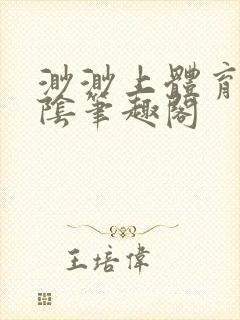 渺渺上體育
陰筆趣閣
王培偉